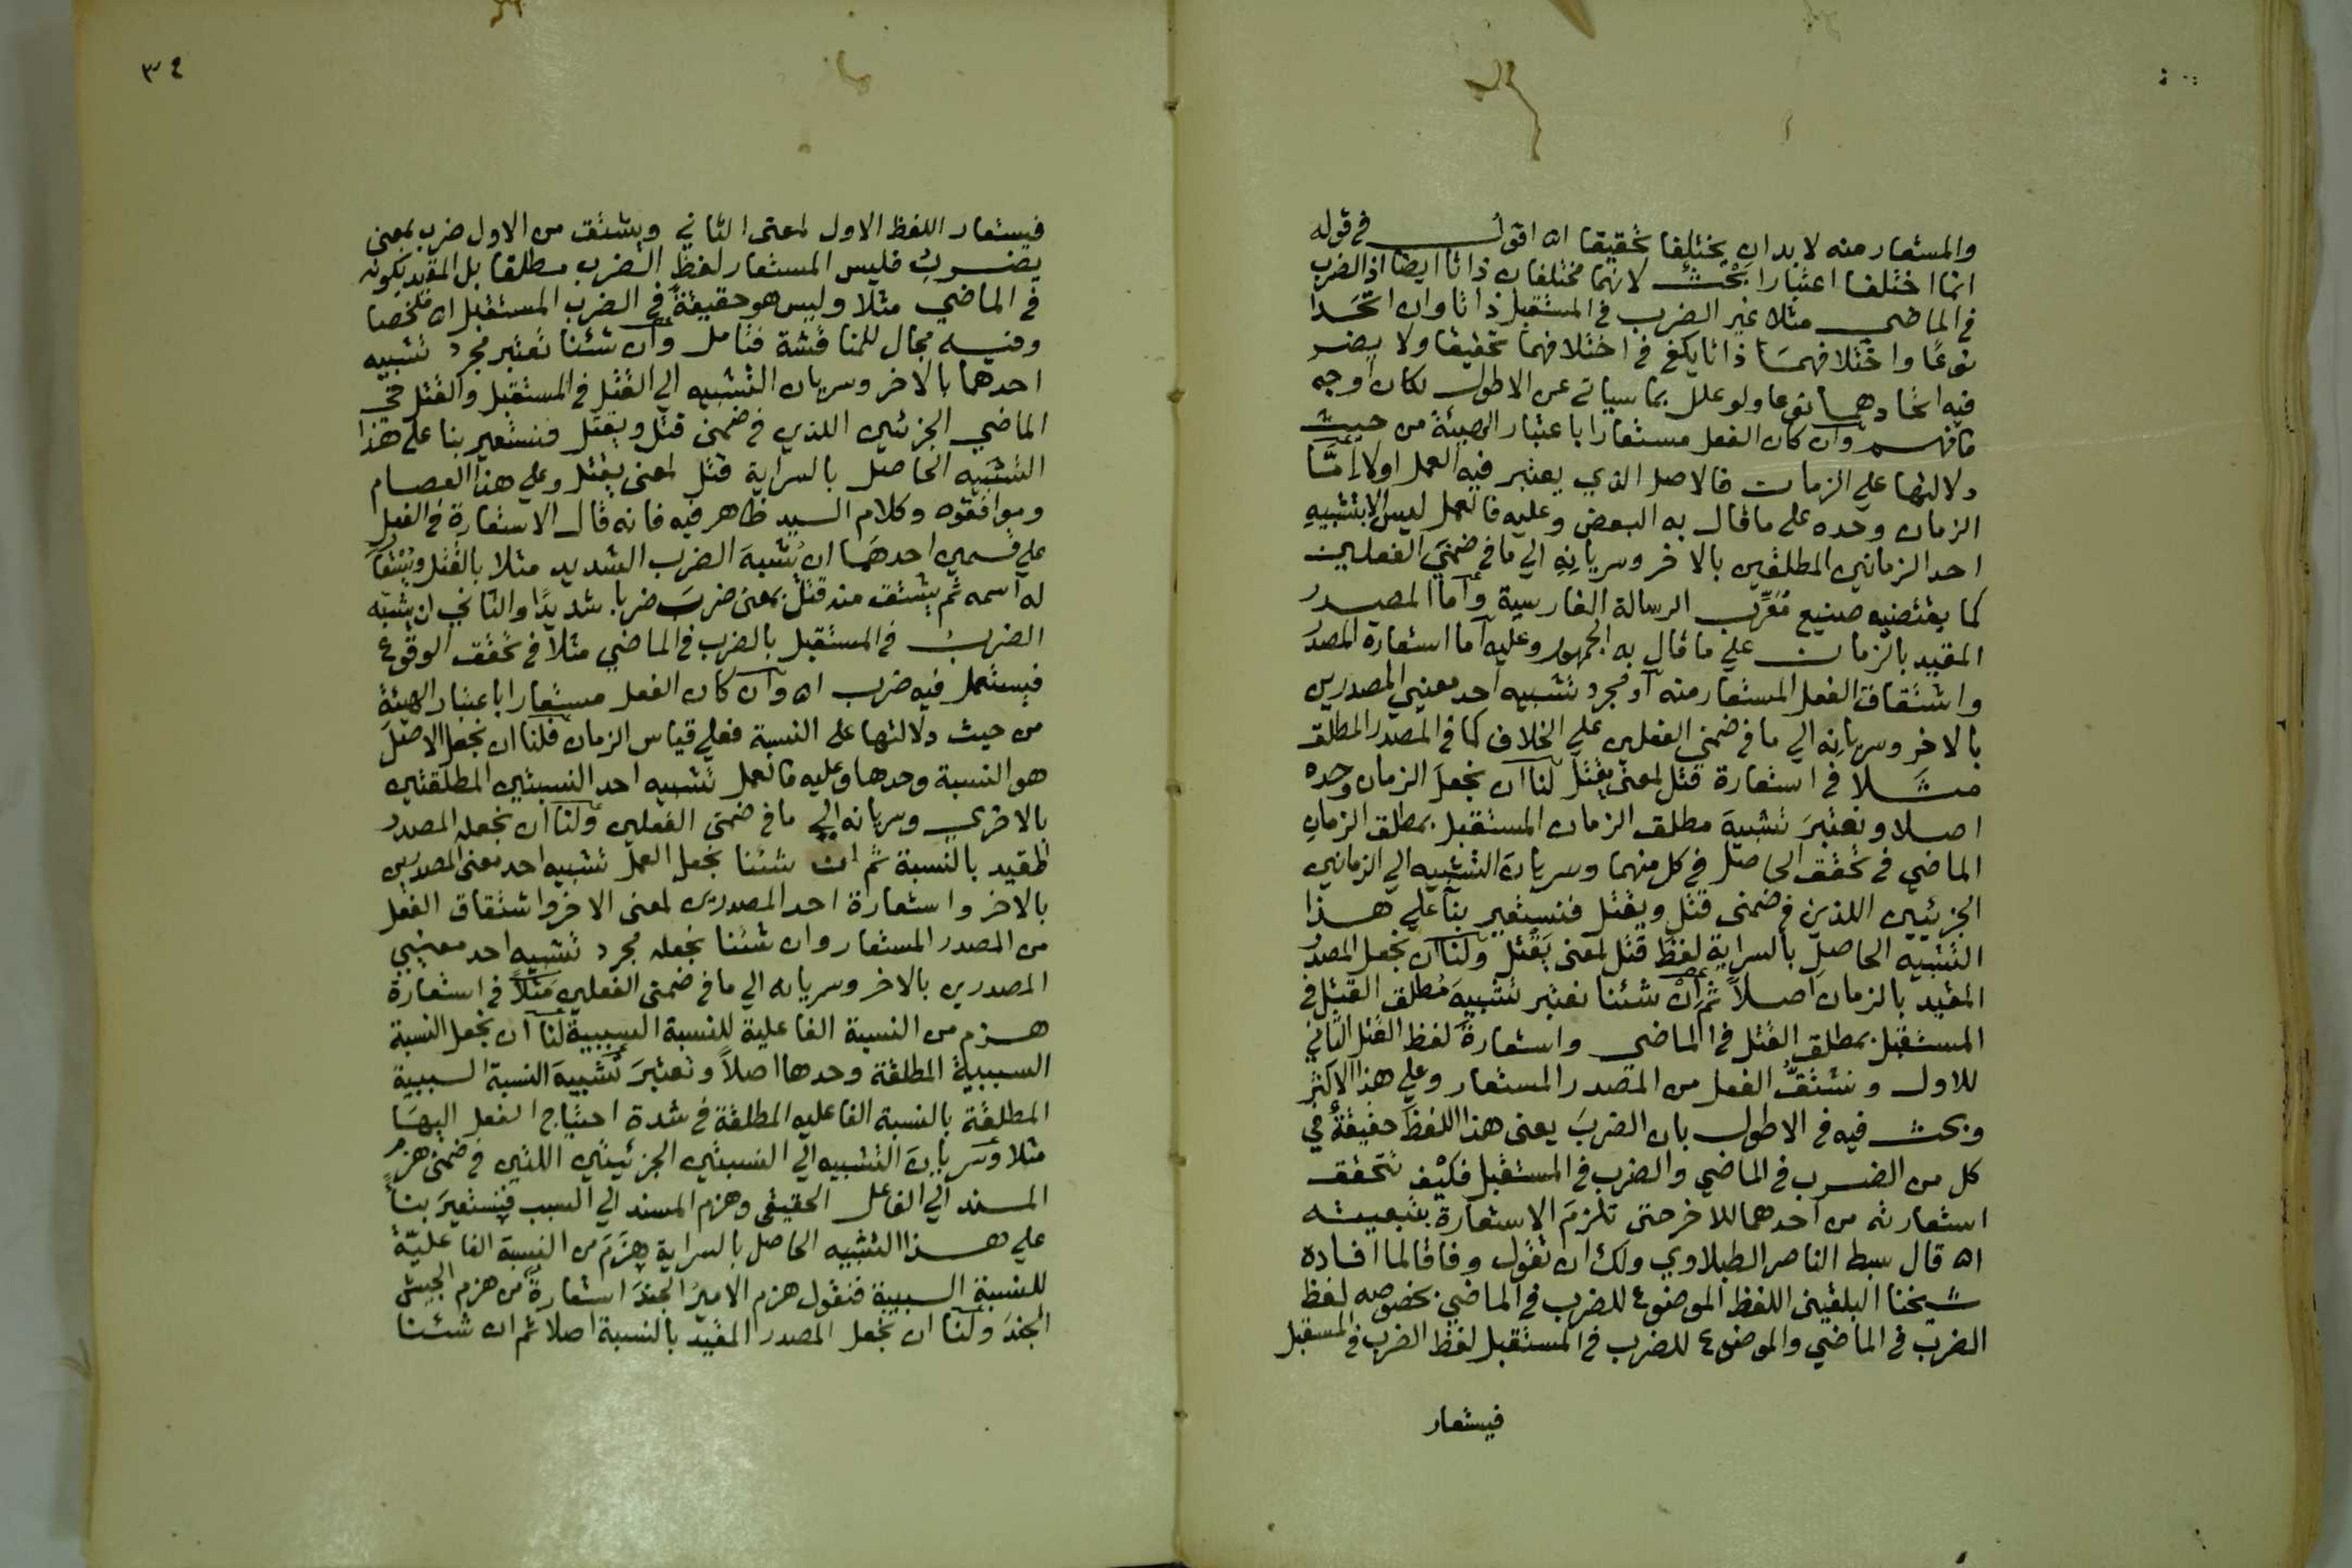 والمستعار منه لا بد ان يختلفا تحقيقا اه اقول في قوله
انما اختلفا اعتبارا بحث لانهما مختلفان ذاتا ايضا اذ الضرب
في الماضي مثلا غير الضرب في المستقبل ذاتا وان اتحدا
نوعًا واختلافهما ذاتا يكفي في اختلافهما تحقيقا ولا يضر
فيه اتحادهما نوعا ولو علل بما سياتي عن الاطول لكان اوجه
فافهم وان كان الفعل مستعارا باعتبار الهيئة من حيث
دلالتها علي الزمان فالاصل الذي يعتبر فيه العمل اولا اِمَّا
الزمان وحده على ما قال به البعض وعليه فالعمل ليس الا بتشبيهِ
احد الزمانين المطلقين بالاخر وسريانِهِ الي ما في ضمنَي الفعلين
كما يقتضيه صنيع مُعَرِّب الرسالة الفارسية واما المصدر
المقيد بالزمان علي ما قال به الجمهور وعليه اما استعارة المصدر
واشتقاق الفعل المستعار منه او مجرد تشبيه احد معنيي المصدرين
بالاخر وسريانِه الي ما في ضمني الفعلين علي الخلاف كما في المصدر المطلق
مثلا في استعارة قتل لمعنى يقتل لنا ان نجعل الزمان وحده
اصلا ونعتبرَ تشبيهَ مطلق الزمان المستقبل بمطلق الزمان
الماضي في تحقق الحاصل في كل منهما وسريانَ التشبيه الي الزمانين
الجزئيين اللذين في ضمني قتل ويقتل فنستعير بناً علي هذا
التشبيه الحاصل بالسراية لفظَ قتل لمعنى يَقتل ولنا ان نجعل المصدر
المقيد بالزمان اصلاً ثم اِنْ شئنا نعتبر تشبيهَ مُطلق القتل في
المستقبل بمطلق القتل في الماضي واستعارةَ لفظ القتل الثاني
للاول ونشتقُّ الفعل من المصدر المستعار وعلي هذا الاكثر
وبحث فيه في الاطول بان الضربَ يعني هذا اللفظَ حقيقةٌ في
كل من الضرب في الماضي والضرب في المستقبل فكيف تتحقق
استعارته من احدهما للاخر حتى تلزمَ الاستعارة بتبعيته
اه قال سبط الناصر الطبلاوي ولك ان تقول وفاقا لما افاده
شيخنا البلقيني اللفظ الموضوع للضرب في الماضي بخصوصه لفظ
الضرب في الماضي والموضوع للضرب في المستقبل لفظ الضرب في المستقبل
فيستعار
٣٤
فيستعار اللفظ الاول لمعنى الثاني ويشتق من الاول ضرب بمعنى
يضرب فليس المستعار لفظَ الضرب مطلقا بل المقيد بكونه
في الماضي مثلا وليس هو حقيقةً في الضرب المستقبل اه ملخصا
وفيه مجال للمناقشة فتامل وان شئنا نعتبر مجرد تشبيه
احدهما بالاخر وسريان التشبيه الي القتل في المستقبل والقتل في
الماضي الجزئيين اللذين في ضمني قتل ويقتل فنستعير بنا علي هذا
التشبيه الحاصل بالسراية قتل لمعنى يقتل وعلي هذا العصام
وموافقوه وكلام السيد ظاهر فيه فانه قال الاستعارة في الفعل
علي قسمين احدهما ان يُشبهَ الضرب الشديد مثلا بالقتل ويُستعار
له اسمه ثم يشتق منه قتل بمعنى ضرب ضربا شديدًا والثاني ان يشبه
الضرب في المستقبل بالضرب في الماضي مثلاً في تحقق الوقوع
فيستعمل فيه ضرب اه وان كان الفعل مستعارا باعتبار الهيئة
من حيث دلالتها علي النسبة فعلي قياس الزمان فلنا ان نجعل الاصل
هو النسبة وحدها وعليه فالعمل تشبيه احد النسبتين المطلقتين
بالاخري وسريانه الي ما في ضمني الفعلين ولنا ان نجعله المصدر
المقيد بالنسبة ثم ان شئنا نجعل العمل تشبيه احد معنى المصدرين
بالاخر واستعارة احد المصدرين لمعنى الاخر واشتقاق الفعل
من المصدر المستعار وان شئنا نجعله مجرد تشبيه احد معنيي
المصدرين بالاخر وسريانه الي ما في ضمني الفعلين مثلاً في استعارة
هزم من النسبة الفاعلية للنسبة السببية لنا ان نجعل النسبة
السببيةَ المطلقة وحدها اصلاً ونعتبرَ تشبيهَ النسبة السببية
المطلقة بالنسبة الفاعليه المطلقة في شدة احتياج الفعل اليها
مثلا وسريانَ التشبيه الي النسبتين الجزئيتين اللتين في ضمني هزم
المسند الي الفاعل الحقيقي وهزم المسند الي السبب فنستعيرَ بناً
علي هذا التشبيه الحاصل بالسراية هَزَمَ من النسبة الفاعليّة
للنسبة السببية فنقول هزم الاميرُ الجندَ استعارةً من هزم الجيش
الجندَ ولنا ان نجعل المصدر المقيد بالنسبة اصلا ثم ان شئنا